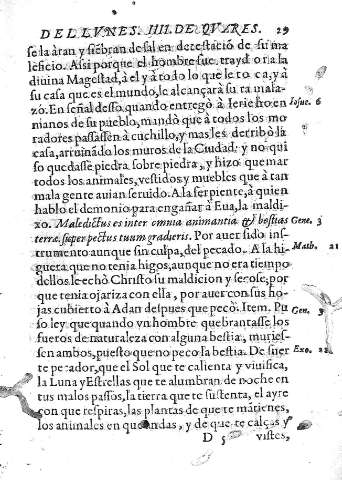 DEL LVNES. IIII. DE QVARES. 29
se la àran y siẽbran de sal en detestaciõ de su ma
leficio. Assi porque el hombre fue traydor a la
diuina Magestad, à el y à todo lo que le toca, y à
su casa que es el mundo, le alcançarà su tu mala-
zõ. En señal desso quando entregò à Ierichò en Iosue. 6
manos de su pueblo, mandò que à todos los mo
radores passassen à cuchillo, y mas les derribò la
casa, arruinãdo los muros de la Ciudad: y no qui
so quedasse piedra sobre piedra, y hizo quemar
todos los animales, vestidos y muebles que à tan
mala gente auian seruido. A la serpiente, à quien
hablo el demonio para engañar à Eua, la maldi-
xo. Maledictus es inter omnia animantia & bestias Gene. 3
terræ, super pectus tuum gradieris. Por auer sido ins-
trumento aunque sin culpa, del pecado. A la hi- Math. 21
guera que no tenia higos, aunque no era tiempo
dellos le echò Christo su maldicion y secose, por
que tenia ojariza con ella, por auer con sus ho-
jas cubierto à Adan despues que pecò. Item. Pu Gen. 3
so ley que quando vn hombre quebrantasse los
fueros de naturaleza con alguna bestia, muries-
sen ambos, puesto que no peco la bestia. De suer Exo. 22
te pecador, que el Sol que te calienta y viuifica,
la Luna y Estrellas que te alumbran de noche en
tus malos passos, la tierra que te sustenta, el ayre
con que respiras, las plantas de que te mãtienes,
los animales en que andas, y de que te calças y
D 5 vistes,